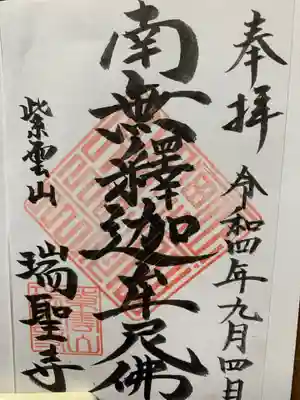 奉拝
令和四年九月四日
南無釋迦牟尼佛
紫雲山
瑞聖寺